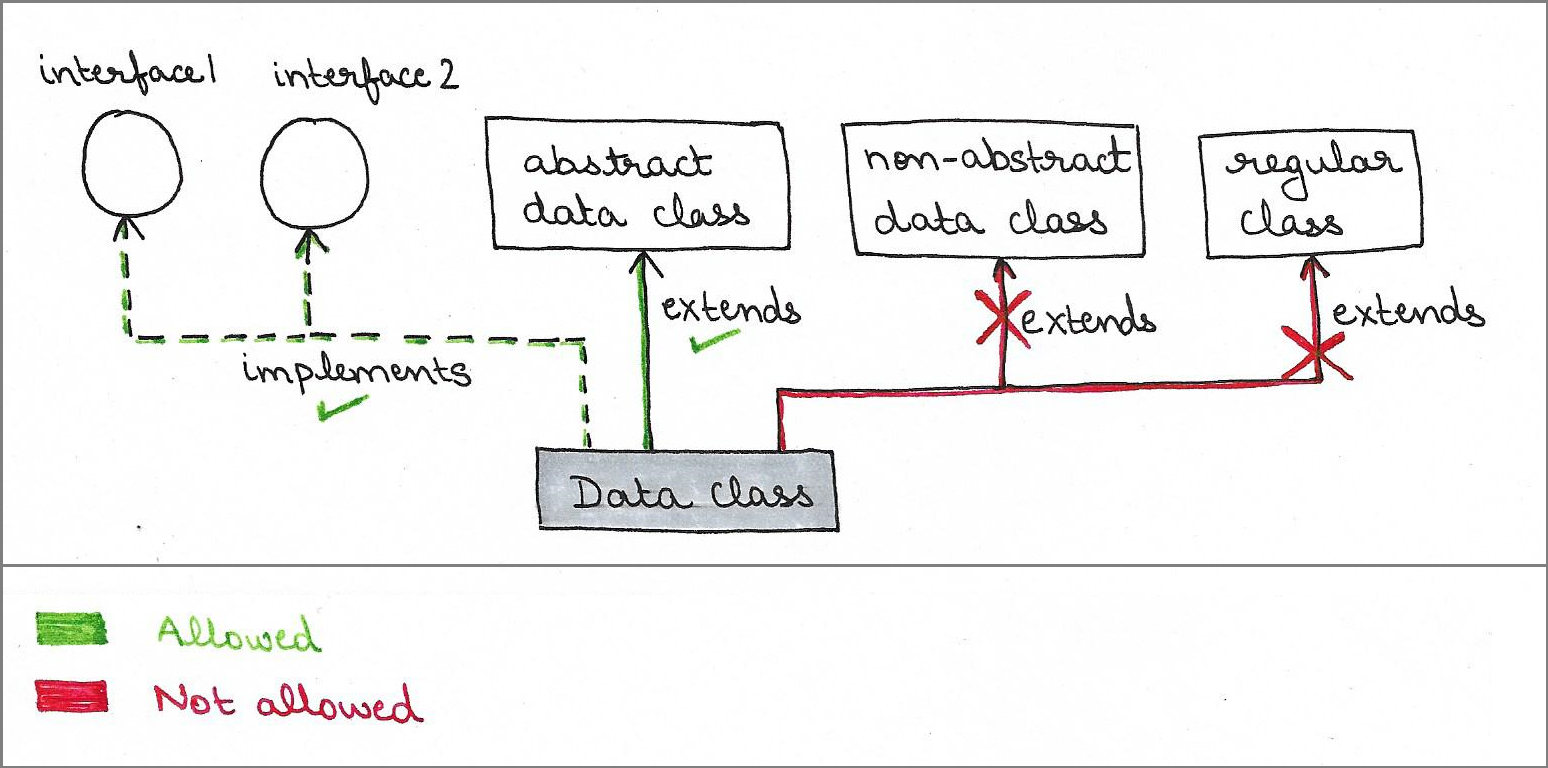 interface1
interface 2
abstract
data class
non-abstract
data class
regular
class
extends
extends
extends
implements
Data class
Allowed
Not allowed